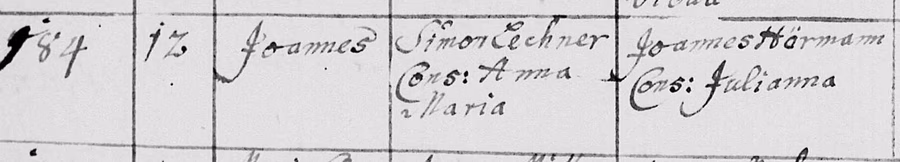 784 12 Joannes Simon Lechner Joannes Hörmann
Cons: Anna Cons: Julianna
Maria